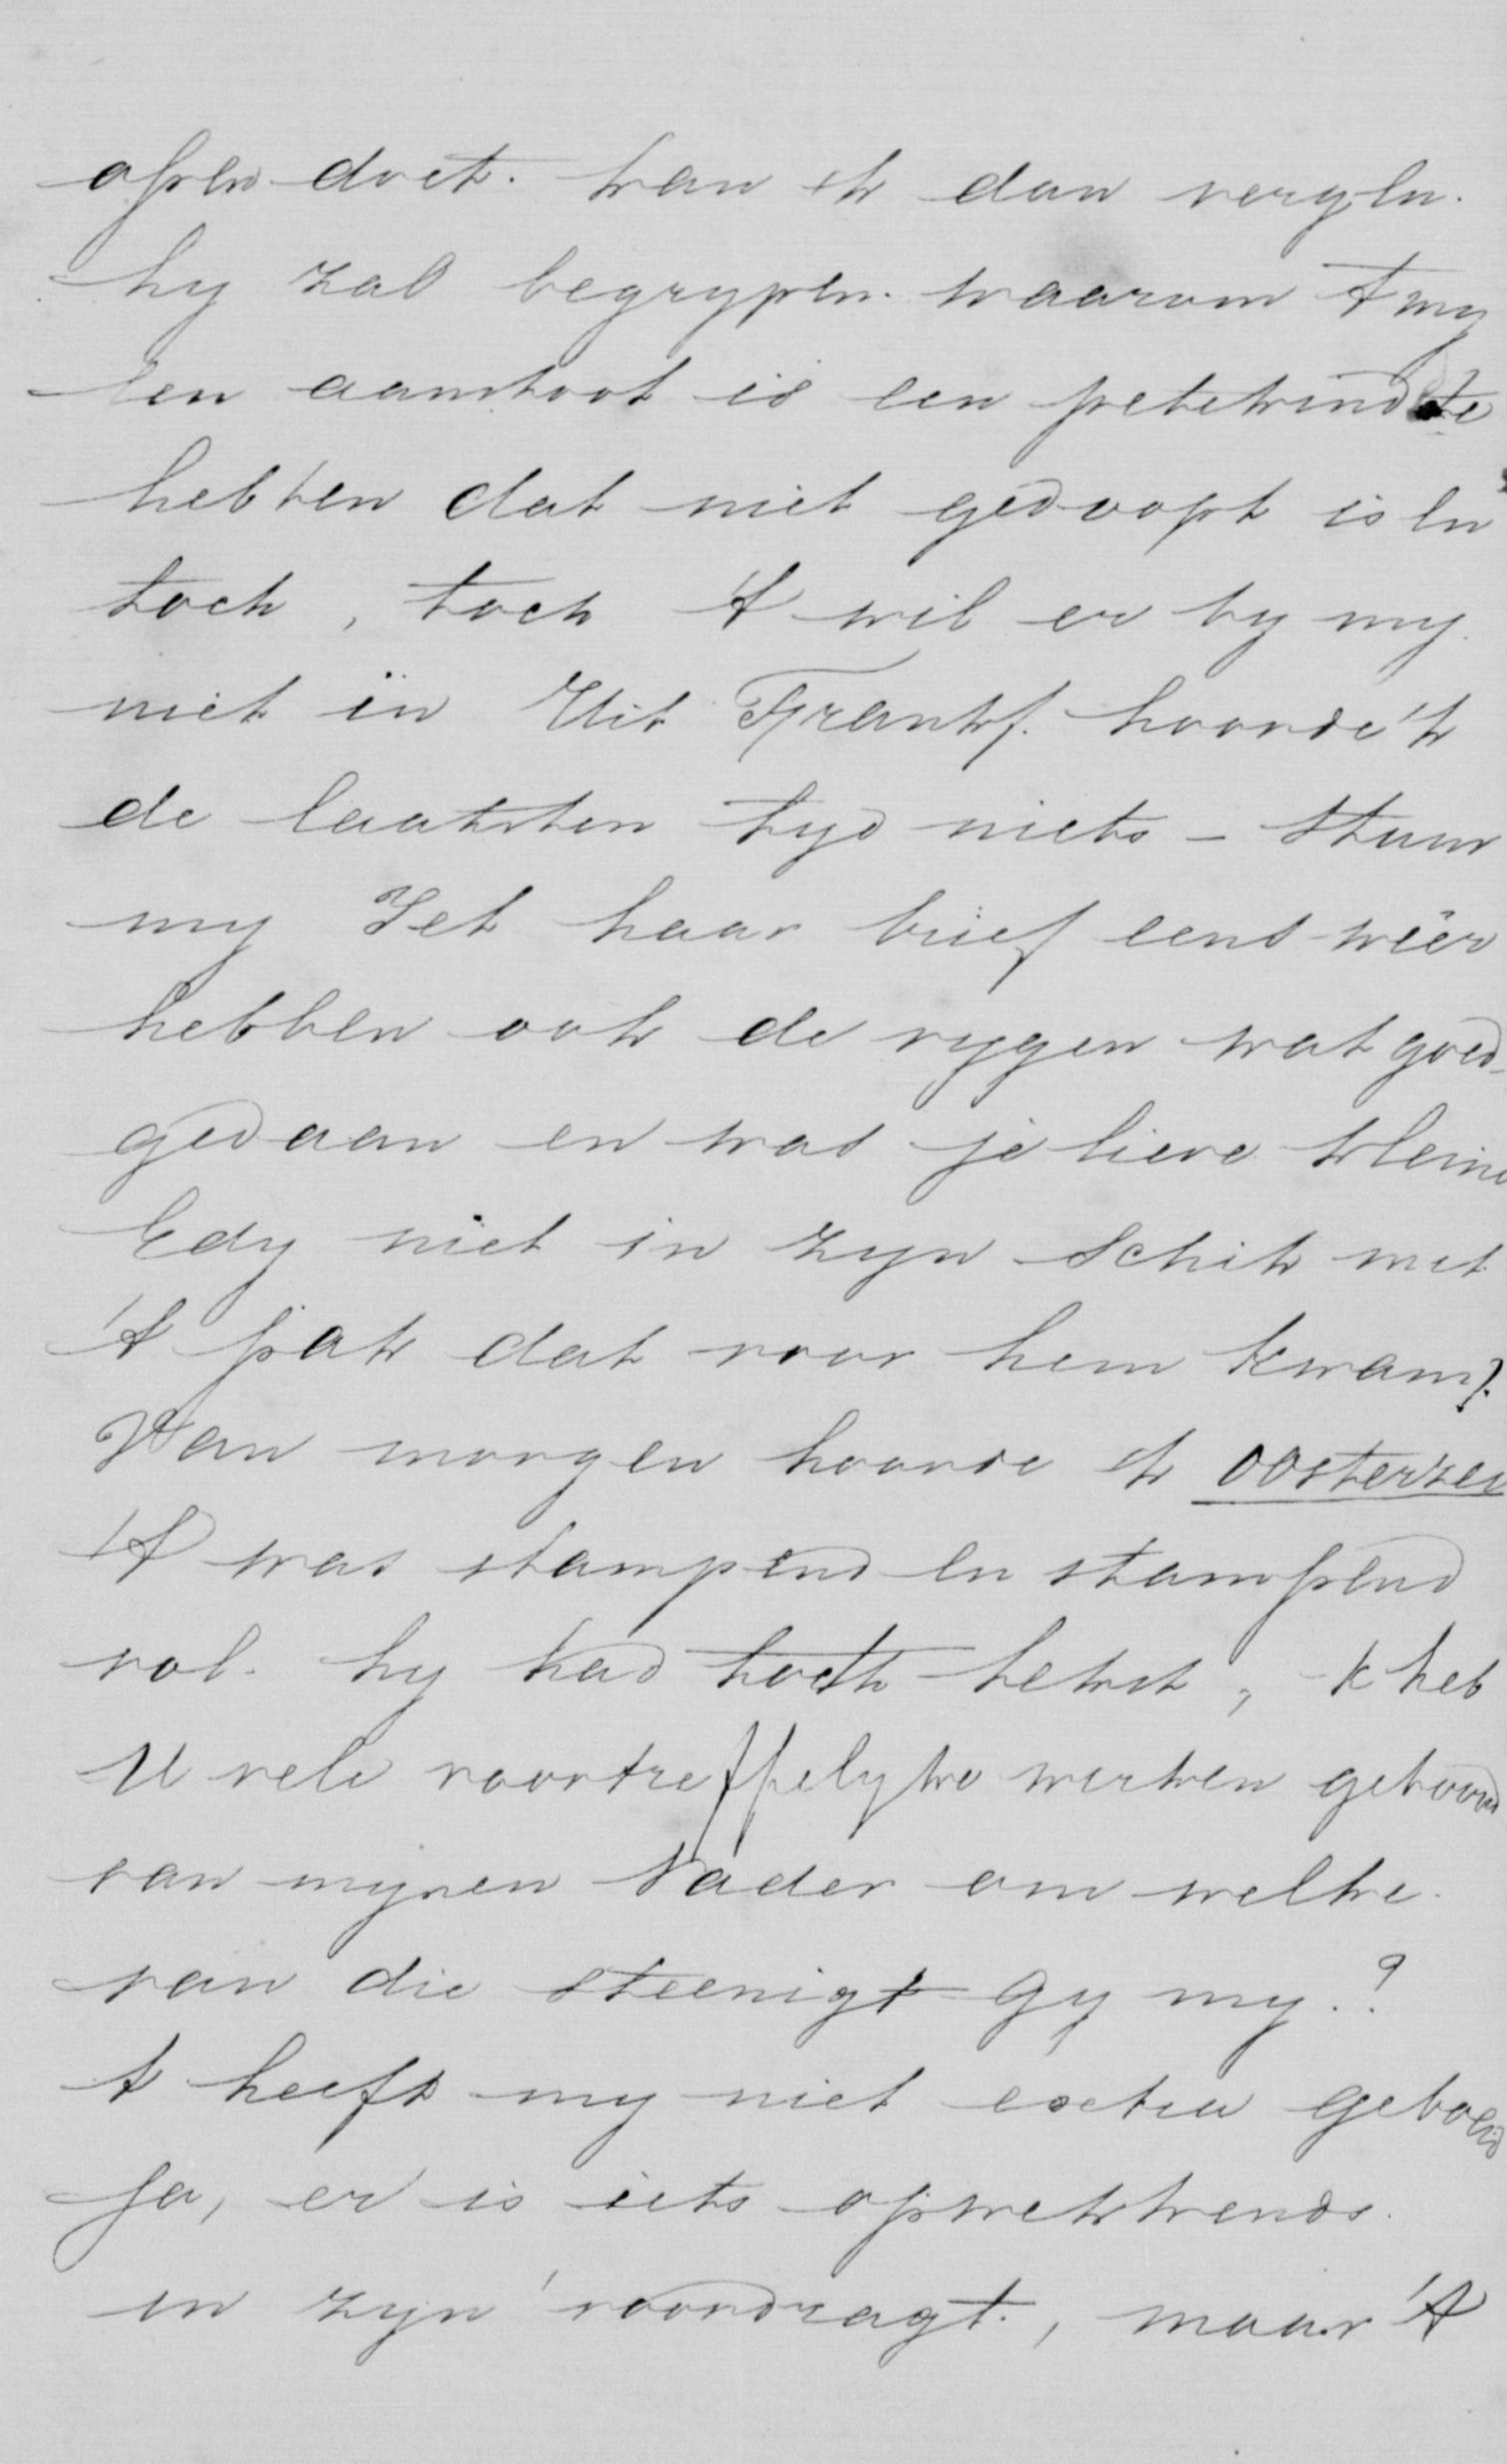 open doet. kan ik dan vergln.
hy zal begrypen. waarom t my
een aanstoot is een petekind te
hebben dat niet gedoopt is en
toch, toch 't wil er by my
niet in Uit Frankf. hoorde 'k
de laatsten tyd niets - stuur
my Jet haar brief eens wéér
hebben ook de vygen wat goed
gedaan en was je lieve kleine
Edy niet in zyn schik met
't pak dat voor hem kwam?
Van morgen hoorde ik Oosterzee
't was stampend en stampend
vol. hy had tot tekst, k heb
U vele voortreffelyke werken getoond
van mijnen Vader om welke
van die steenigt Gy my.?
t heeft my niet extra geboeid
Ja, er is iets opwekkends
in zyn voordragt, maar 't